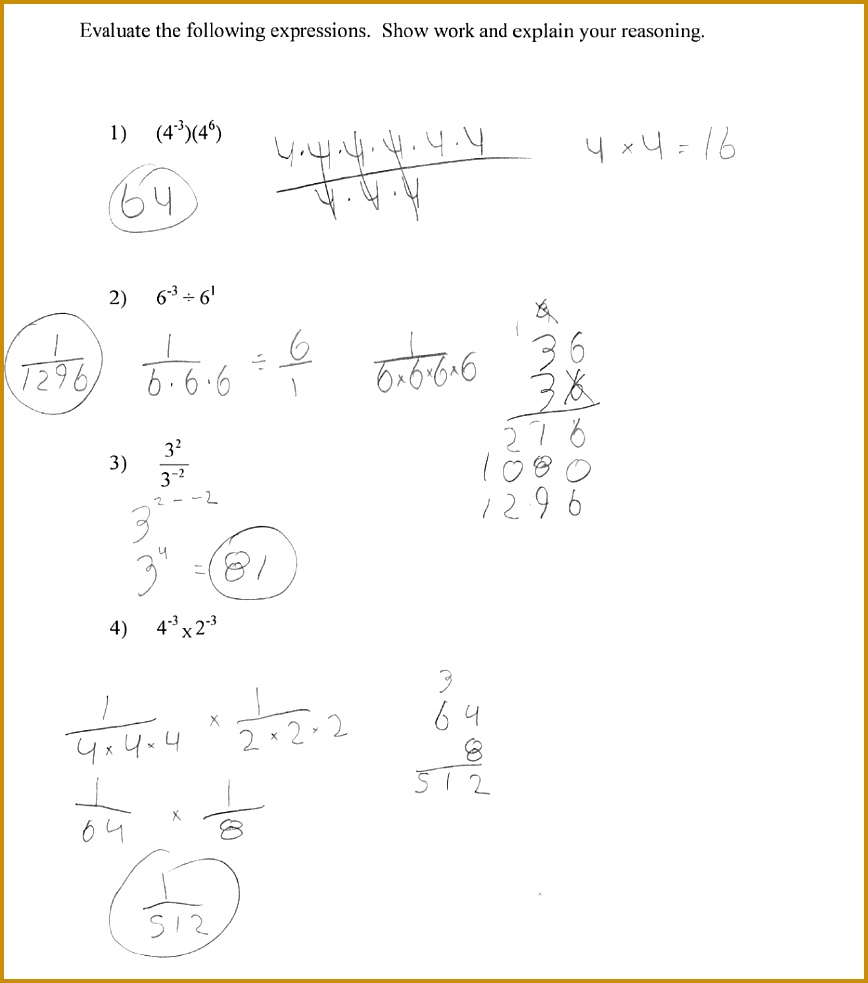 Evaluate the following expressions. Show work and explain your reasoning.
1) (4⁻³)(4⁶)
4·4·4·4·4·4
4·4·4
4 × 4 = 16
64
2) 6⁻³ ÷ 6¹
1/1296
1/6·6·6 ÷ 6/1
1/6×6×6×6
1
36
36
276
1080
1296
3) 3²/3⁻²
3²⁻⁻²
3⁴ = 81
4) 4⁻³ x 2⁻³
1/4×4×4 × 1/2×2×2
1/64 × 1/8
1/512
3
64
8
512